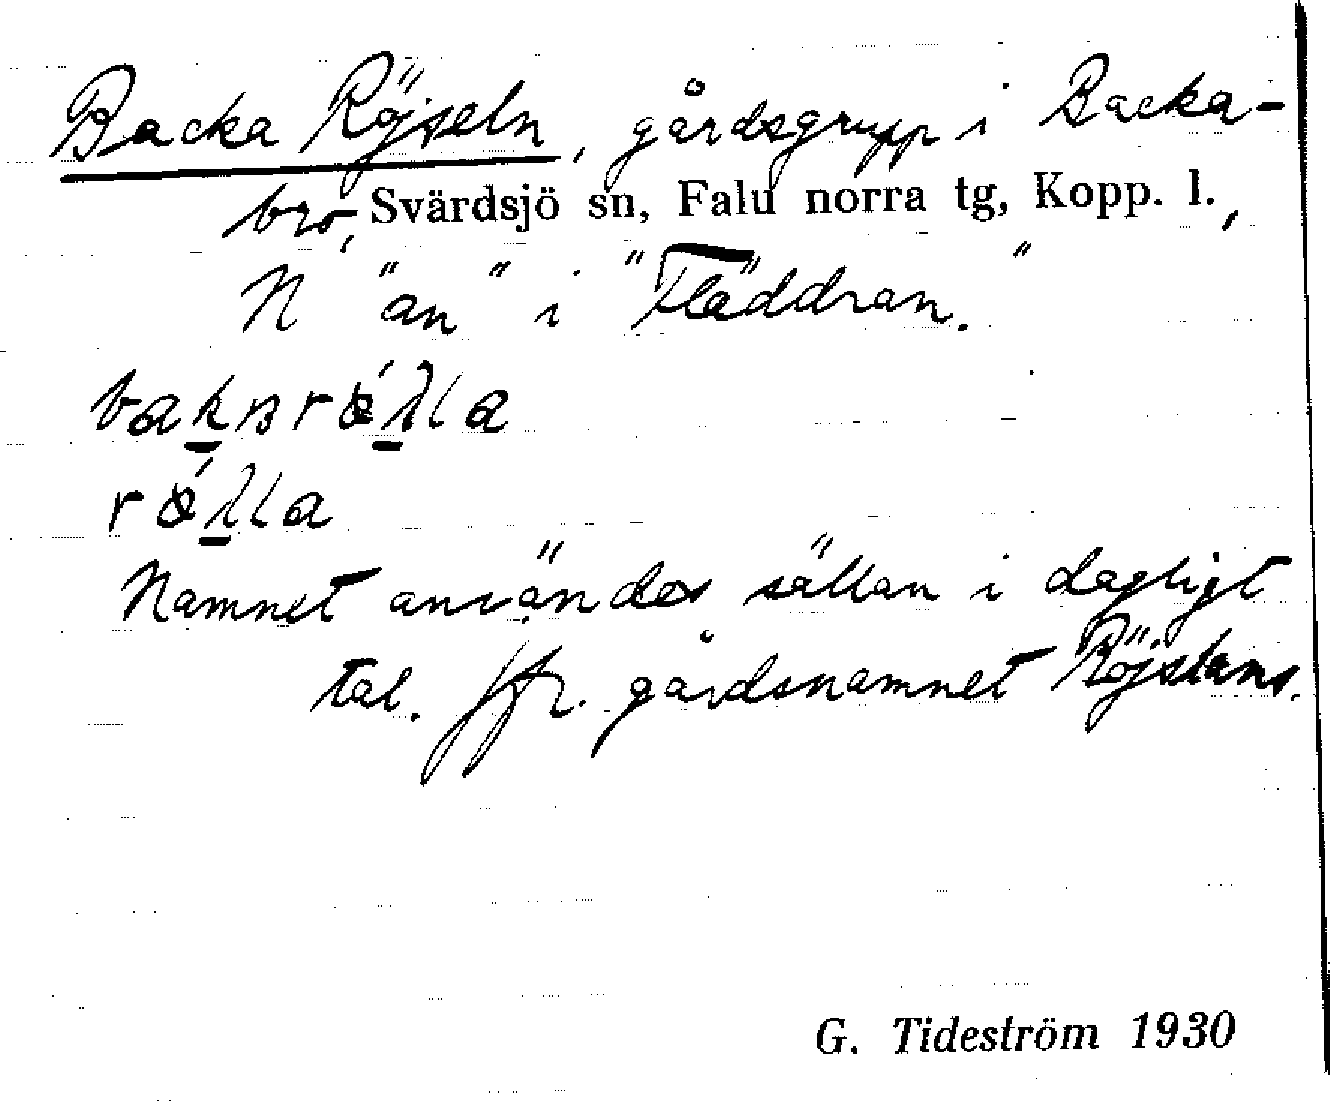 Backa Röjseln, gårdsgrupp i Backa-
bro, Svärdsjö sn, Falu norra tg, Kopp. l.,
N "än" i "Fläddran."
Namnet användes sällan i dagligt
tal. Jfr. gårdsnamnet Röjslans.
G. Tideström 1930